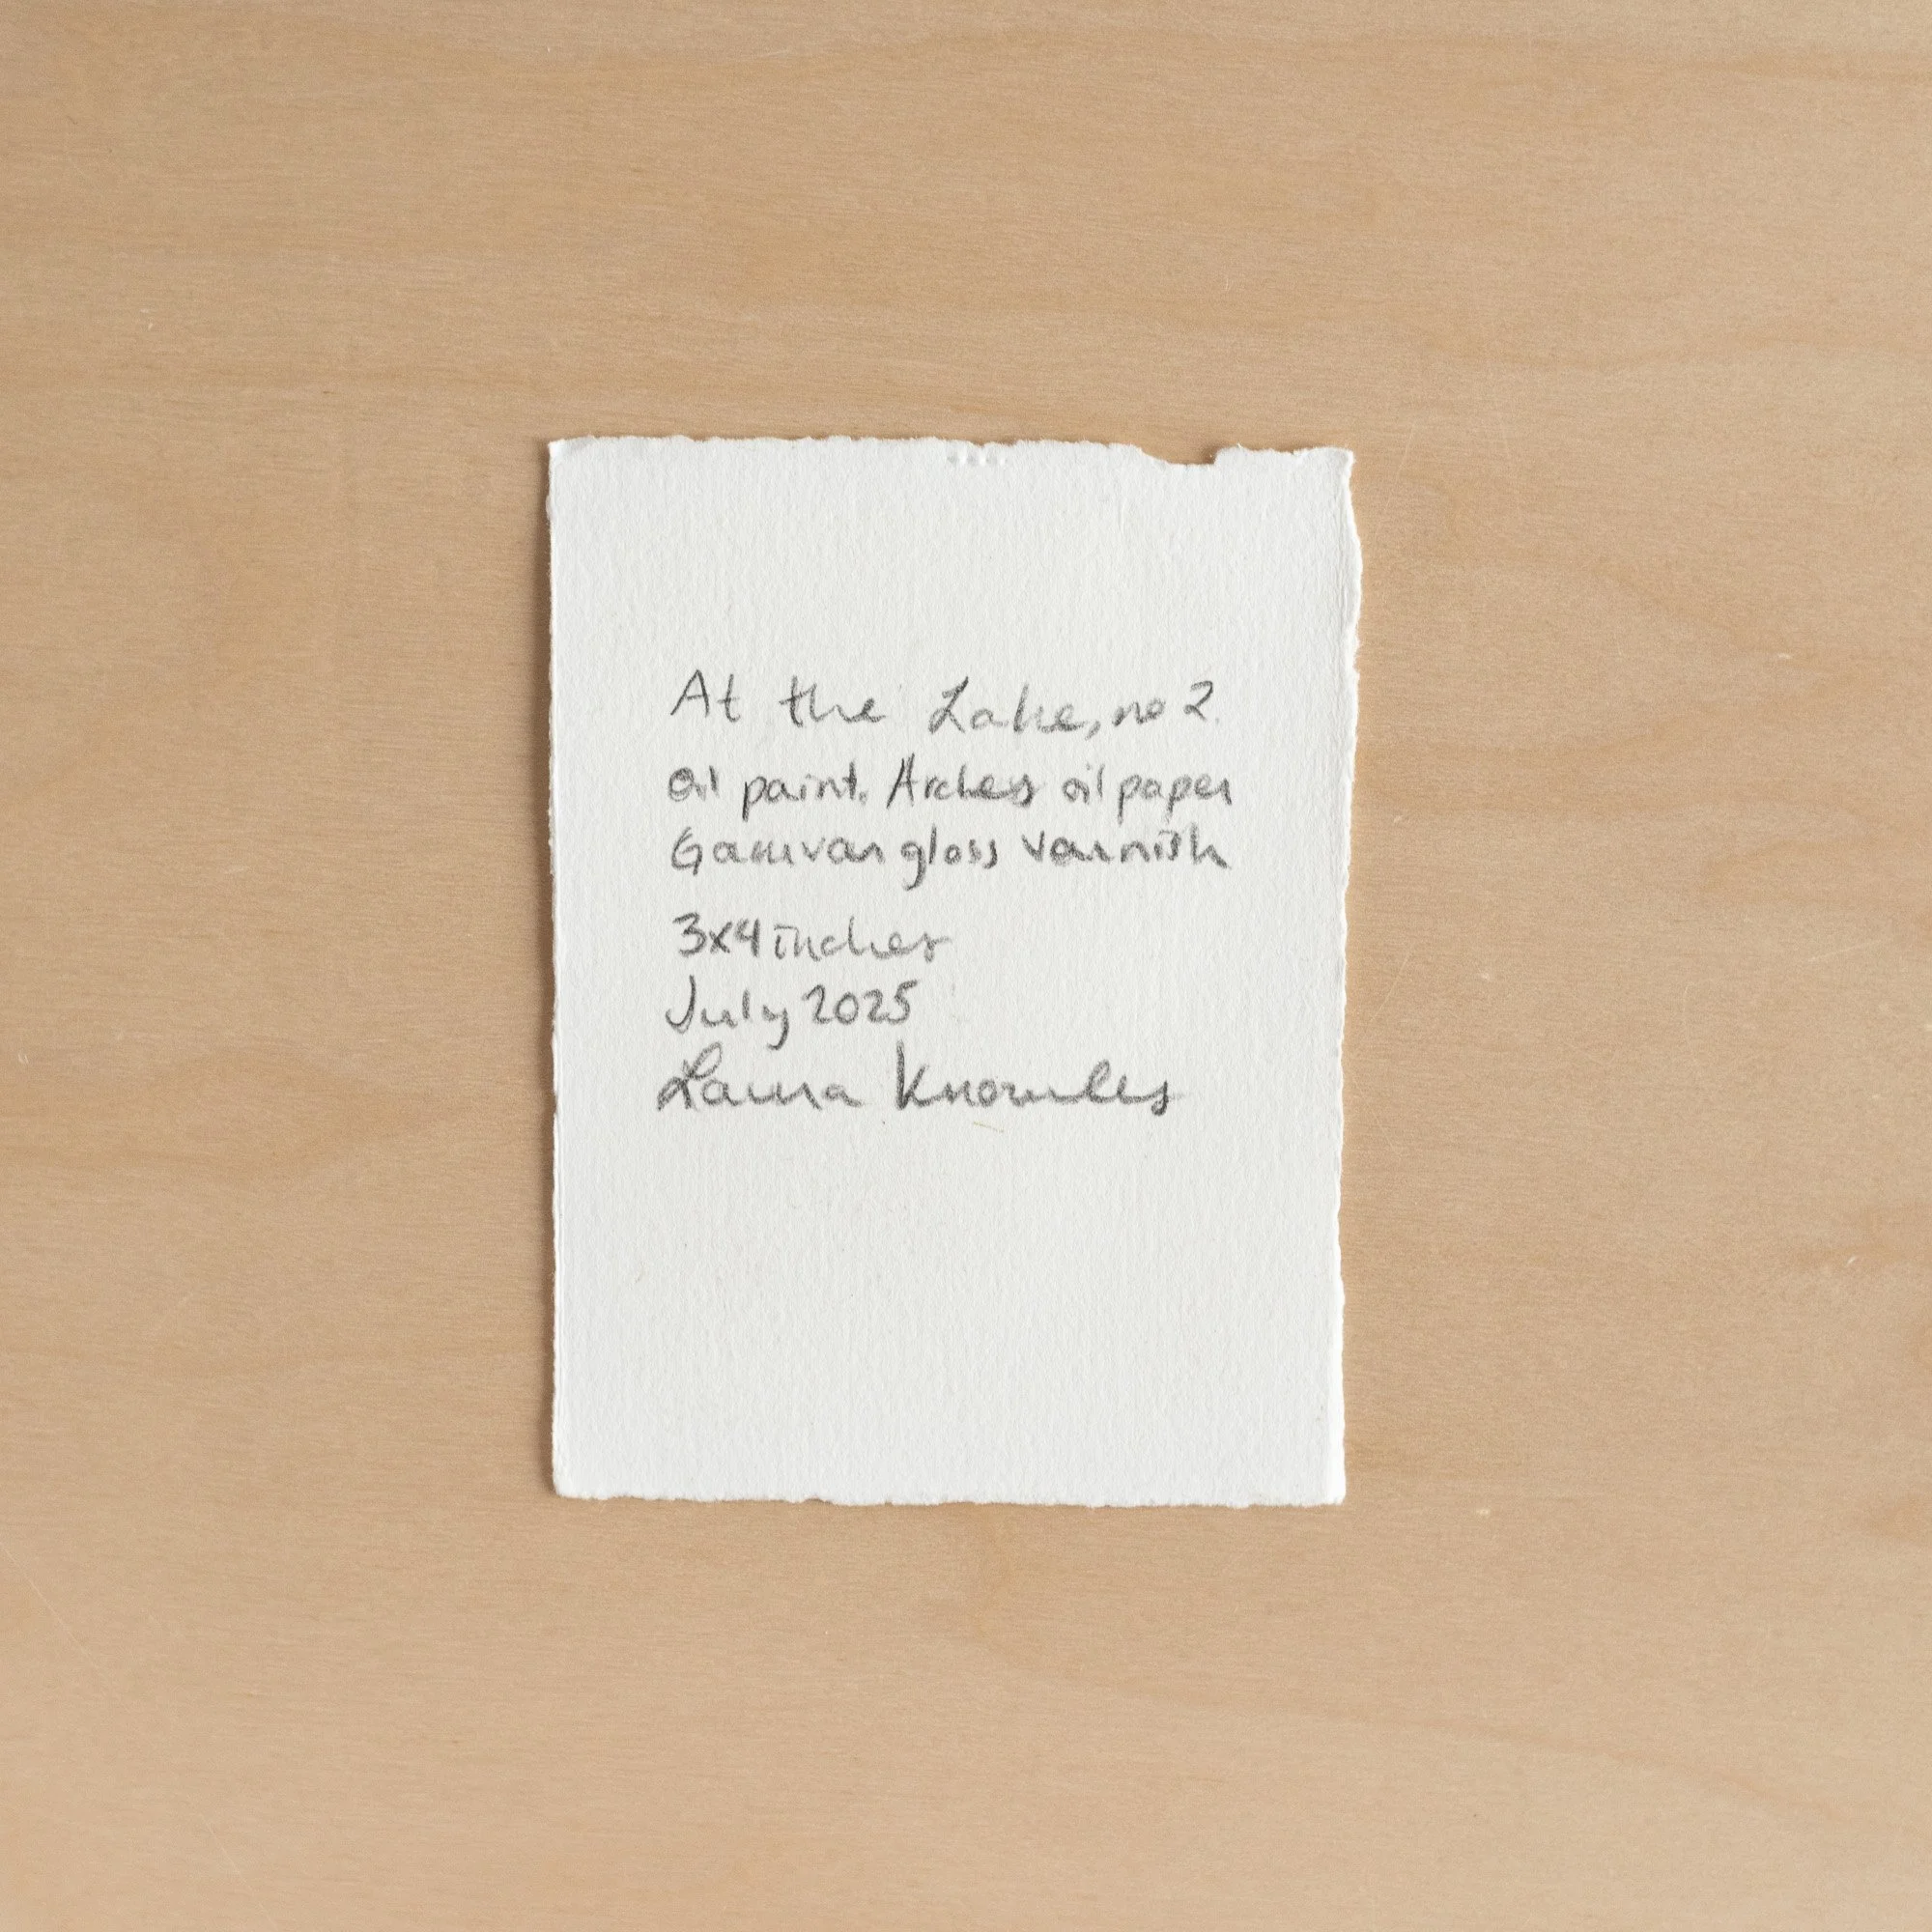 At the Lake, no 2.
Oil paint. Arches oil paper
Gamvar gloss varnish
3x4 inches
July 2025
Laura Knowles